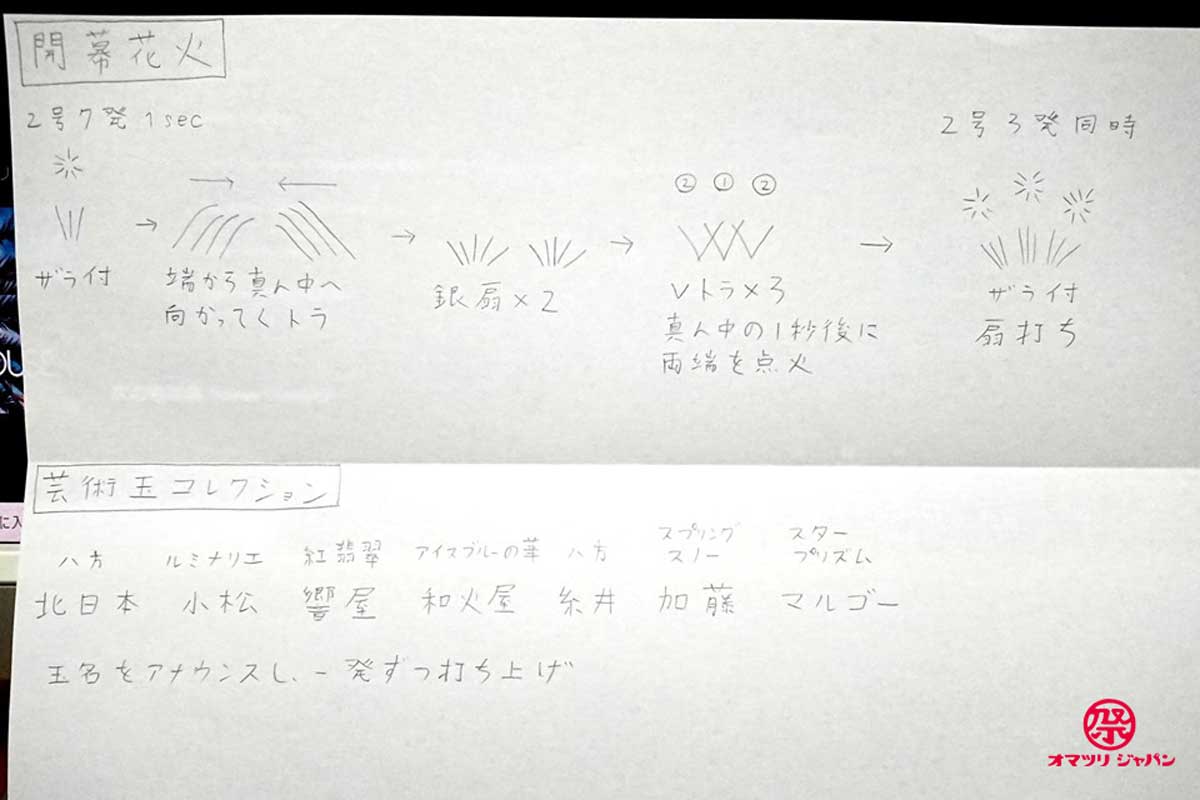 開幕花火
2号7発 1sec
2号3発同時
② ① ②
ザラ付
端から真ん中へ
向かってくトラ
銀扇×2
Vトラ×3
真ん中の1秒後に
両端を点火
ザライ付
扇打ち
芸術玉コレクション
八方 ルミナリエ 紅翡翠 アイスブルーの華 八方 スプリングスノー スタープリズム
北日本 小松 響屋 和火屋 糸井 加藤 マルゴー
玉名をアナウンスし、一発ずつ打ち上げ
に入
祭
オマツリ ジャパン